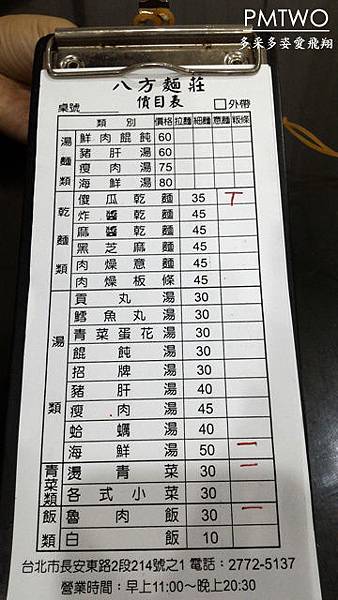 PMTWO
多采多姿愛飛翔
八方麵莊
價目表
桌號 □外帶
類別 價格 拉麵 細麵 意麵 粄條
湯麵類
鮮肉餛飩 60
豬肝湯 60
瘦肉湯 75
海鮮湯 80
乾麵類
傻瓜乾麵 35 丅
炸醬乾麵 45
麻醬乾麵 45
黑芝麻麵 45
肉燥意麵 45
肉燥板條 45
湯類
貢丸湯 30
鱈魚丸湯 30
青菜蛋花湯 30
餛飩湯 30
招牌湯 30
豬肝湯 40
瘦肉湯 45
蛤蠣湯 40
海鮮湯 50 一
青菜類
燙青菜 30 一
各式小菜 30
飯類
魯肉飯 30 一
白飯 10
台北市長安東路2段214號之1 電話：2772-5137
營業時間：早上11:00～晚上20:30